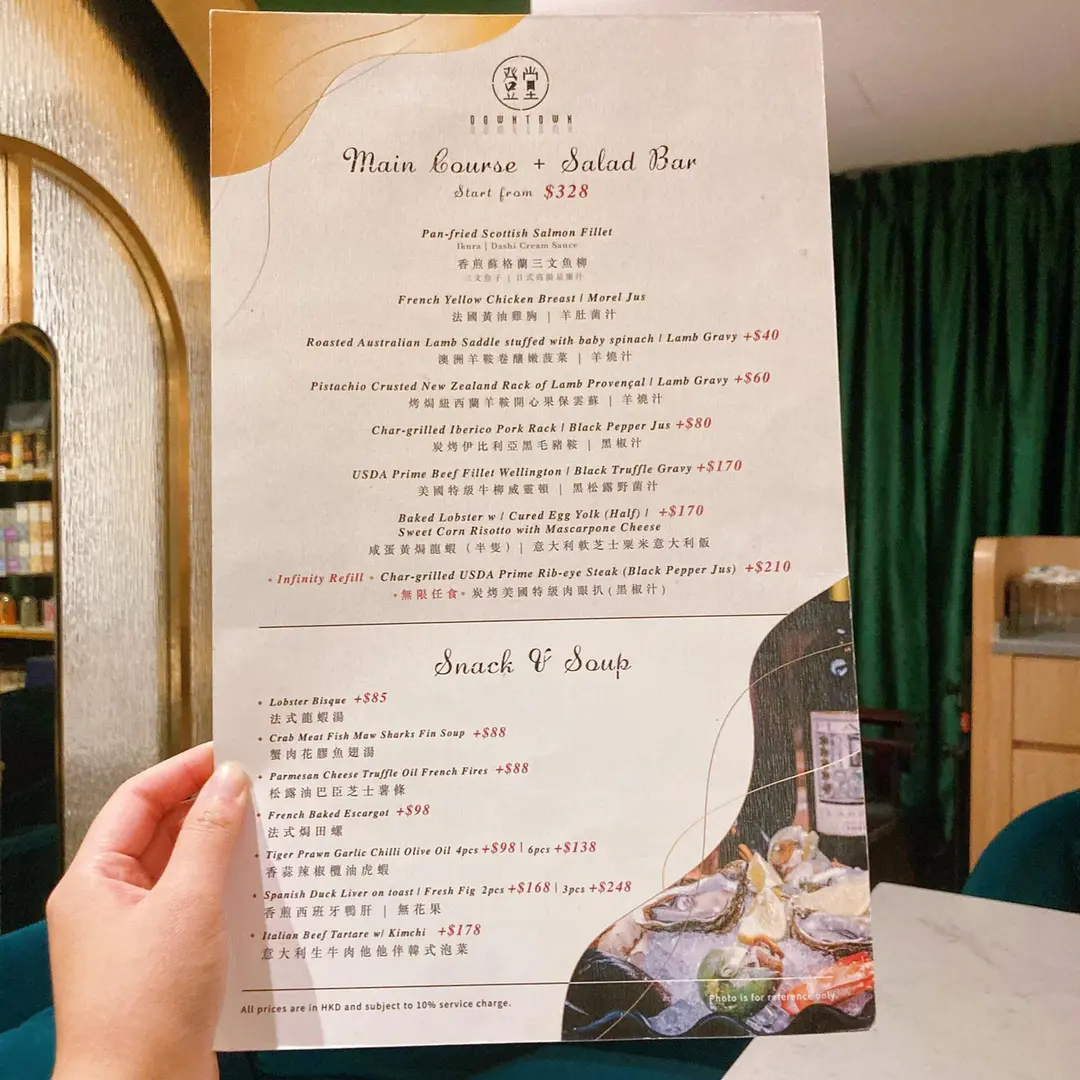 登堂
DOWNTOWN
Main Course + Salad Bar
Start from $328
Pan-fried Scottish Salmon Fillet
Ikura | Dashi Cream Sauce
香煎蘇格蘭三文魚柳
三文魚子 | 日式
French Yellow Chicken Breast | Morel Jus
法國黃油雞胸 | 羊肚菌汁
Roasted Australian Lamb Saddle stuffed with baby spinach | Lamb Gravy +$40
澳洲羊鞍卷釀嫩菠菜 | 羊燒汁
Pistachio Crusted New Zealand Rack of Lamb Provençal | Lamb Gravy +$60
烤焗紐西蘭羊鞍開心果保雲蘇 | 羊燒汁
Char-grilled Iberico Pork Rack | Black Pepper Jus +$80
炭烤伊比利亞黑毛豬鞍 | 黑椒汁
USDA Prime Beef Fillet Wellington | Black Truffle Gravy +$170
美國特級牛柳威靈頓 | 黑松露野菌汁
Baked Lobster w/ Cured Egg Yolk (Half) | +$170
Sweet Corn Risotto with Mascarpone Cheese
咸蛋黃焗龍蝦（半隻）| 意大利軟芝士粟米意大利飯
• Infinity Refill • Char-grilled USDA Prime Rib-eye Steak (Black Pepper Jus) +$210
•無限任食• 炭烤美國特級肉眼扒(黑椒汁)
Snack & Soup
• Lobster Bisque +$85
法式龍蝦湯
• Crab Meat Fish Maw Sharks Fin Soup +$88
蟹肉花膠魚翅湯
• Parmesan Cheese Truffle Oil French Fires +$88
松露油巴臣芝士薯條
• French Baked Escargot +$98
法式焗田螺
• Tiger Prawn Garlic Chilli Olive Oil 4pcs +$98 | 6pcs +$138
香蒜辣椒欖油虎蝦
• Spanish Duck Liver on toast | Fresh Fig 2pcs +$168 | 3pcs +$248
香煎西班牙鴨肝 | 無花果
• Italian Beef Tartare w/ Kimchi +$178
意大利生牛肉他他伴韓式泡菜
All prices are in HKD and subject to 10% service charge.
Photo is for reference only.